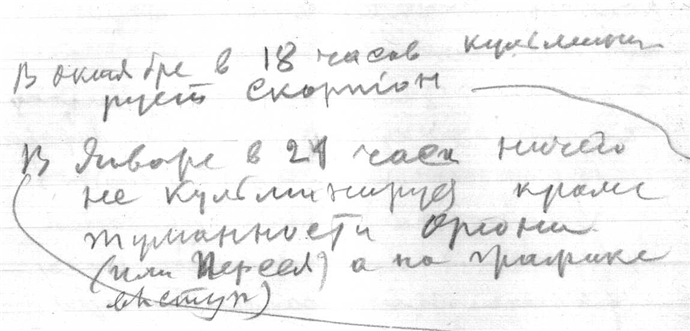 В октябре в 18 часов кульмини
рует Скорпион
В Январе в 24 часа ничего
не кульминирует кроме
туманности Ориона
(или Персея) а по графике